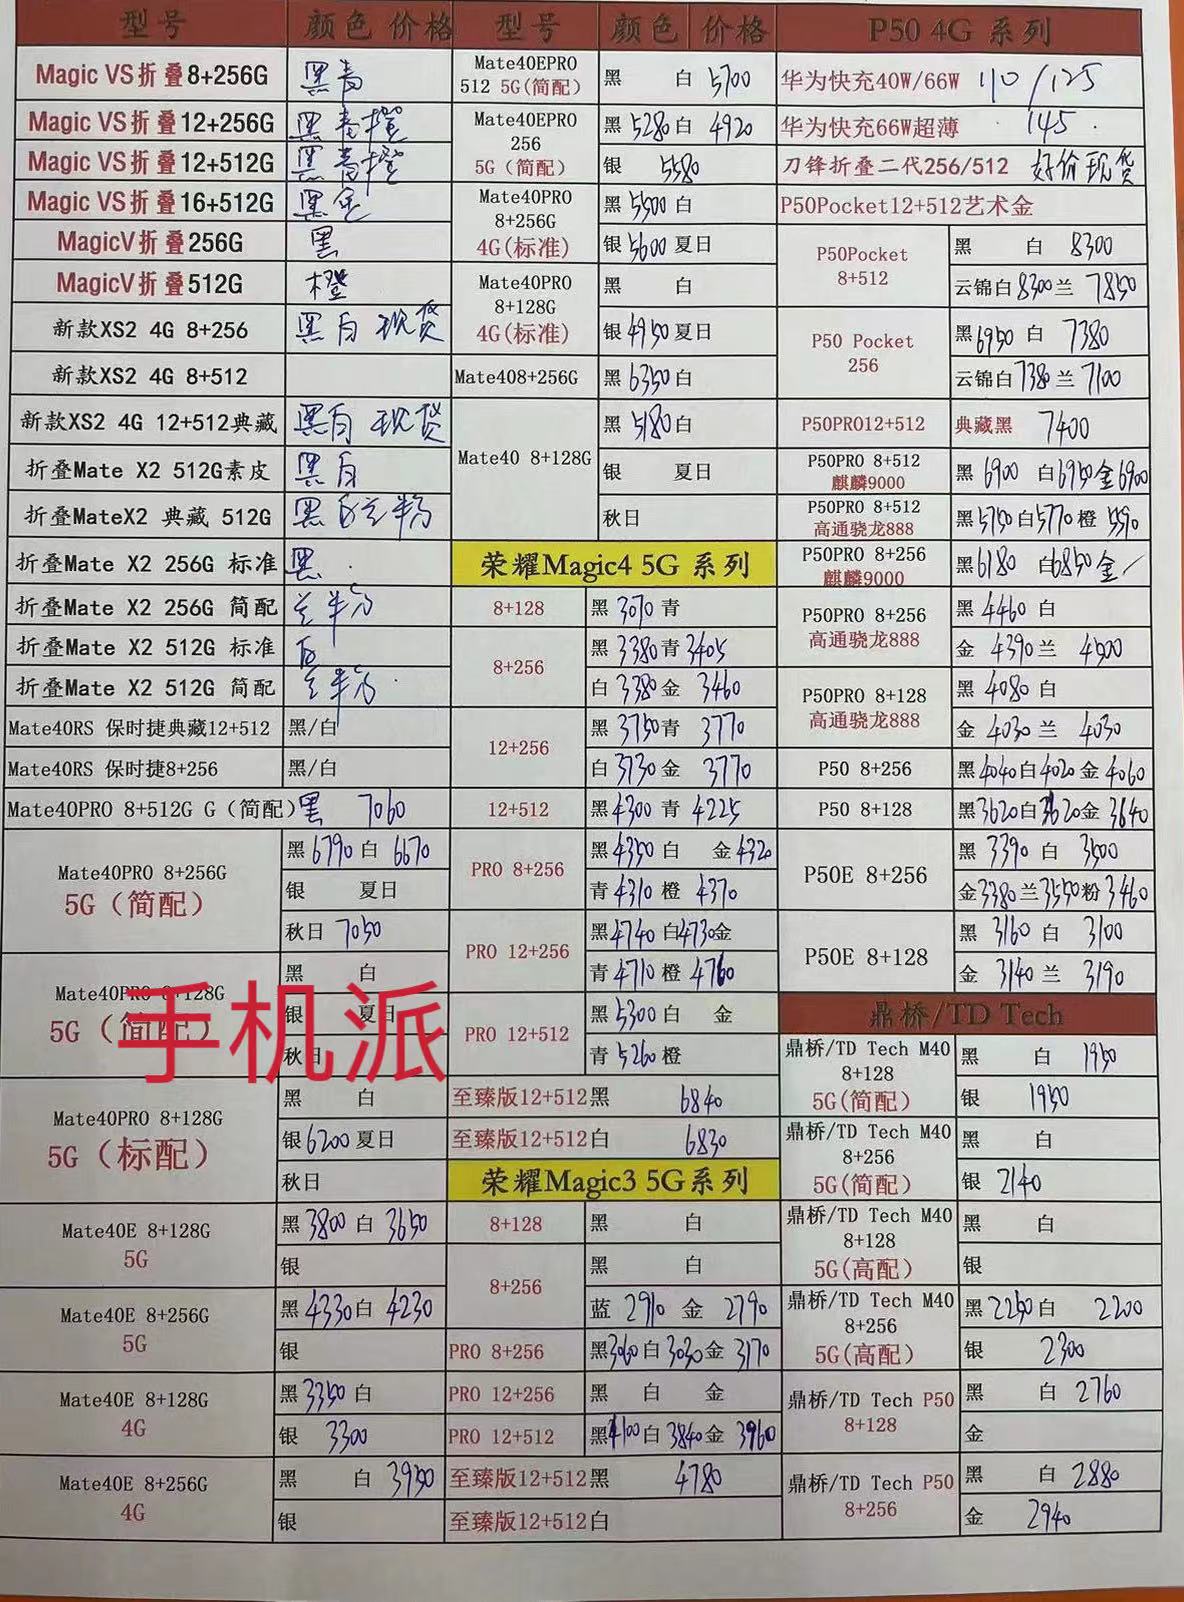 型号 颜色 价格
Magic VS折叠8+256G 黑青
Magic VS折叠12+256G 黑青橙
Magic VS折叠12+512G 黑青橙
Magic VS折叠16+512G 黑金
MagicV折叠256G 黑
MagicV折叠512G 橙
新款XS2 4G 8+256 黑白 现货
新款XS2 4G 8+512
新款XS2 4G 12+512典藏 黑白 现货
折叠Mate X2 512G素皮 黑白
折叠MateX2 典藏 512G 黑白兰粉
折叠Mate X2 256G 标准 黑
折叠Mate X2 256G 简配 兰粉
折叠Mate X2 512G 标准 白
折叠Mate X2 512G 简配 兰粉
Mate40RS 保时捷典藏12+512 黑/白
Mate40RS 保时捷8+256 黑/白
Mate40PRO 8+512G G(简配) 黑 7060
Mate40PRO 8+256G
5G(简配)
黑 6790 白 6670
银 夏日
秋日 7050
Mate40PRO 8+128G
5G(简配)
黑 白
银 夏日
秋日
手机派
Mate40PRO 8+128G
5G(标配)
黑 白
银 6200 夏日
秋日
Mate40E 8+128G
5G
黑 3800 白 3650
银
Mate40E 8+256G
5G
黑 4330 白 4230
银
Mate40E 8+128G
4G
黑 3350 白
银 3300
Mate40E 8+256G
4G
黑 白 3950
银
型号 颜色 价格
Mate40EPRO
512 5G(简配)
黑 白 5700
Mate40EPRO
256
5G(简配)
黑 5280 白 4920
银 5580
Mate40PRO
8+256G
4G(标准)
黑 5500 白
银 5600 夏日
Mate40PRO
8+128G
4G(标准)
黑 白
银 4950 夏日
Mate408+256G 黑 6350 白
Mate40 8+128G
黑 5180 白
银 夏日
秋日
荣耀Magic4 5G 系列
8+128 黑 3070 青
8+256
黑 3380 青 3405
白 3380 金 3460
12+256
黑 3750 青 3770
白 3730 金 3770
12+512 黑 4300 青 4225
PRO 8+256
黑 4350 白 金 4320
青 4310 橙 4370
PRO 12+256
黑 4740 白 4730 金
青 4710 橙 4760
PRO 12+512
黑 5300 白 金
青 5260 橙
至臻版12+512黑 6840
至臻版12+512白 6830
荣耀Magic3 5G系列
8+128 黑 白
8+256
黑 白
蓝 2910 金 2790
PRO 8+256 黑 3060 白 3030 金 3170
PRO 12+256 黑 白 金
PRO 12+512 黑 4100 白 3840 金 3960
至臻版12+512黑 4780
至臻版12+512白
P50 4G 系列
华为快充40W/66W 110/125
华为快充66W超薄 145
刀锋折叠二代256/512 好价现货
P50Pocket12+512艺术金
P50Pocket
8+512
黑 白 8300
云锦白 8300 兰 7850
P50 Pocket
256
黑 6950 白 7380
云锦白 7380 兰 7100
P50PRO12+512 典藏黑 7400
P50PRO 8+512
麒麟9000
黑 6900 白 6950 金 6900
P50PRO 8+512
高通骁龙888
黑 5750 白 5770 橙 5590
P50PRO 8+256
麒麟9000
黑 6180 白 6850 金 /
P50PRO 8+256
高通骁龙888
黑 4460 白
金 4390 兰 4500
P50PRO 8+128
高通骁龙888
黑 4080 白
金 4030 兰 4030
P50 8+256 黑 4040 白 4020 金 4060
P50 8+128 黑 3620 白 3620 金 3640
P50E 8+256
黑 3390 白 3500
金 3380 兰 3550 粉 3460
P50E 8+128
黑 3160 白 3100
金 3140 兰 3190
鼎桥/TD Tech
鼎桥/TD Tech M40
8+128
5G(简配)
黑 白 1950
银 1950
鼎桥/TD Tech M40
8+256
5G(简配)
黑 白
银 2140
鼎桥/TD Tech M40
8+128
5G(高配)
黑 白
银
鼎桥/TD Tech M40
8+256
5G(高配)
黑 2250 白 2200
银 2300
鼎桥/TD Tech P50
8+128
黑 白 2760
金
鼎桥/TD Tech P50
8+256
黑 白 2880
金 2940